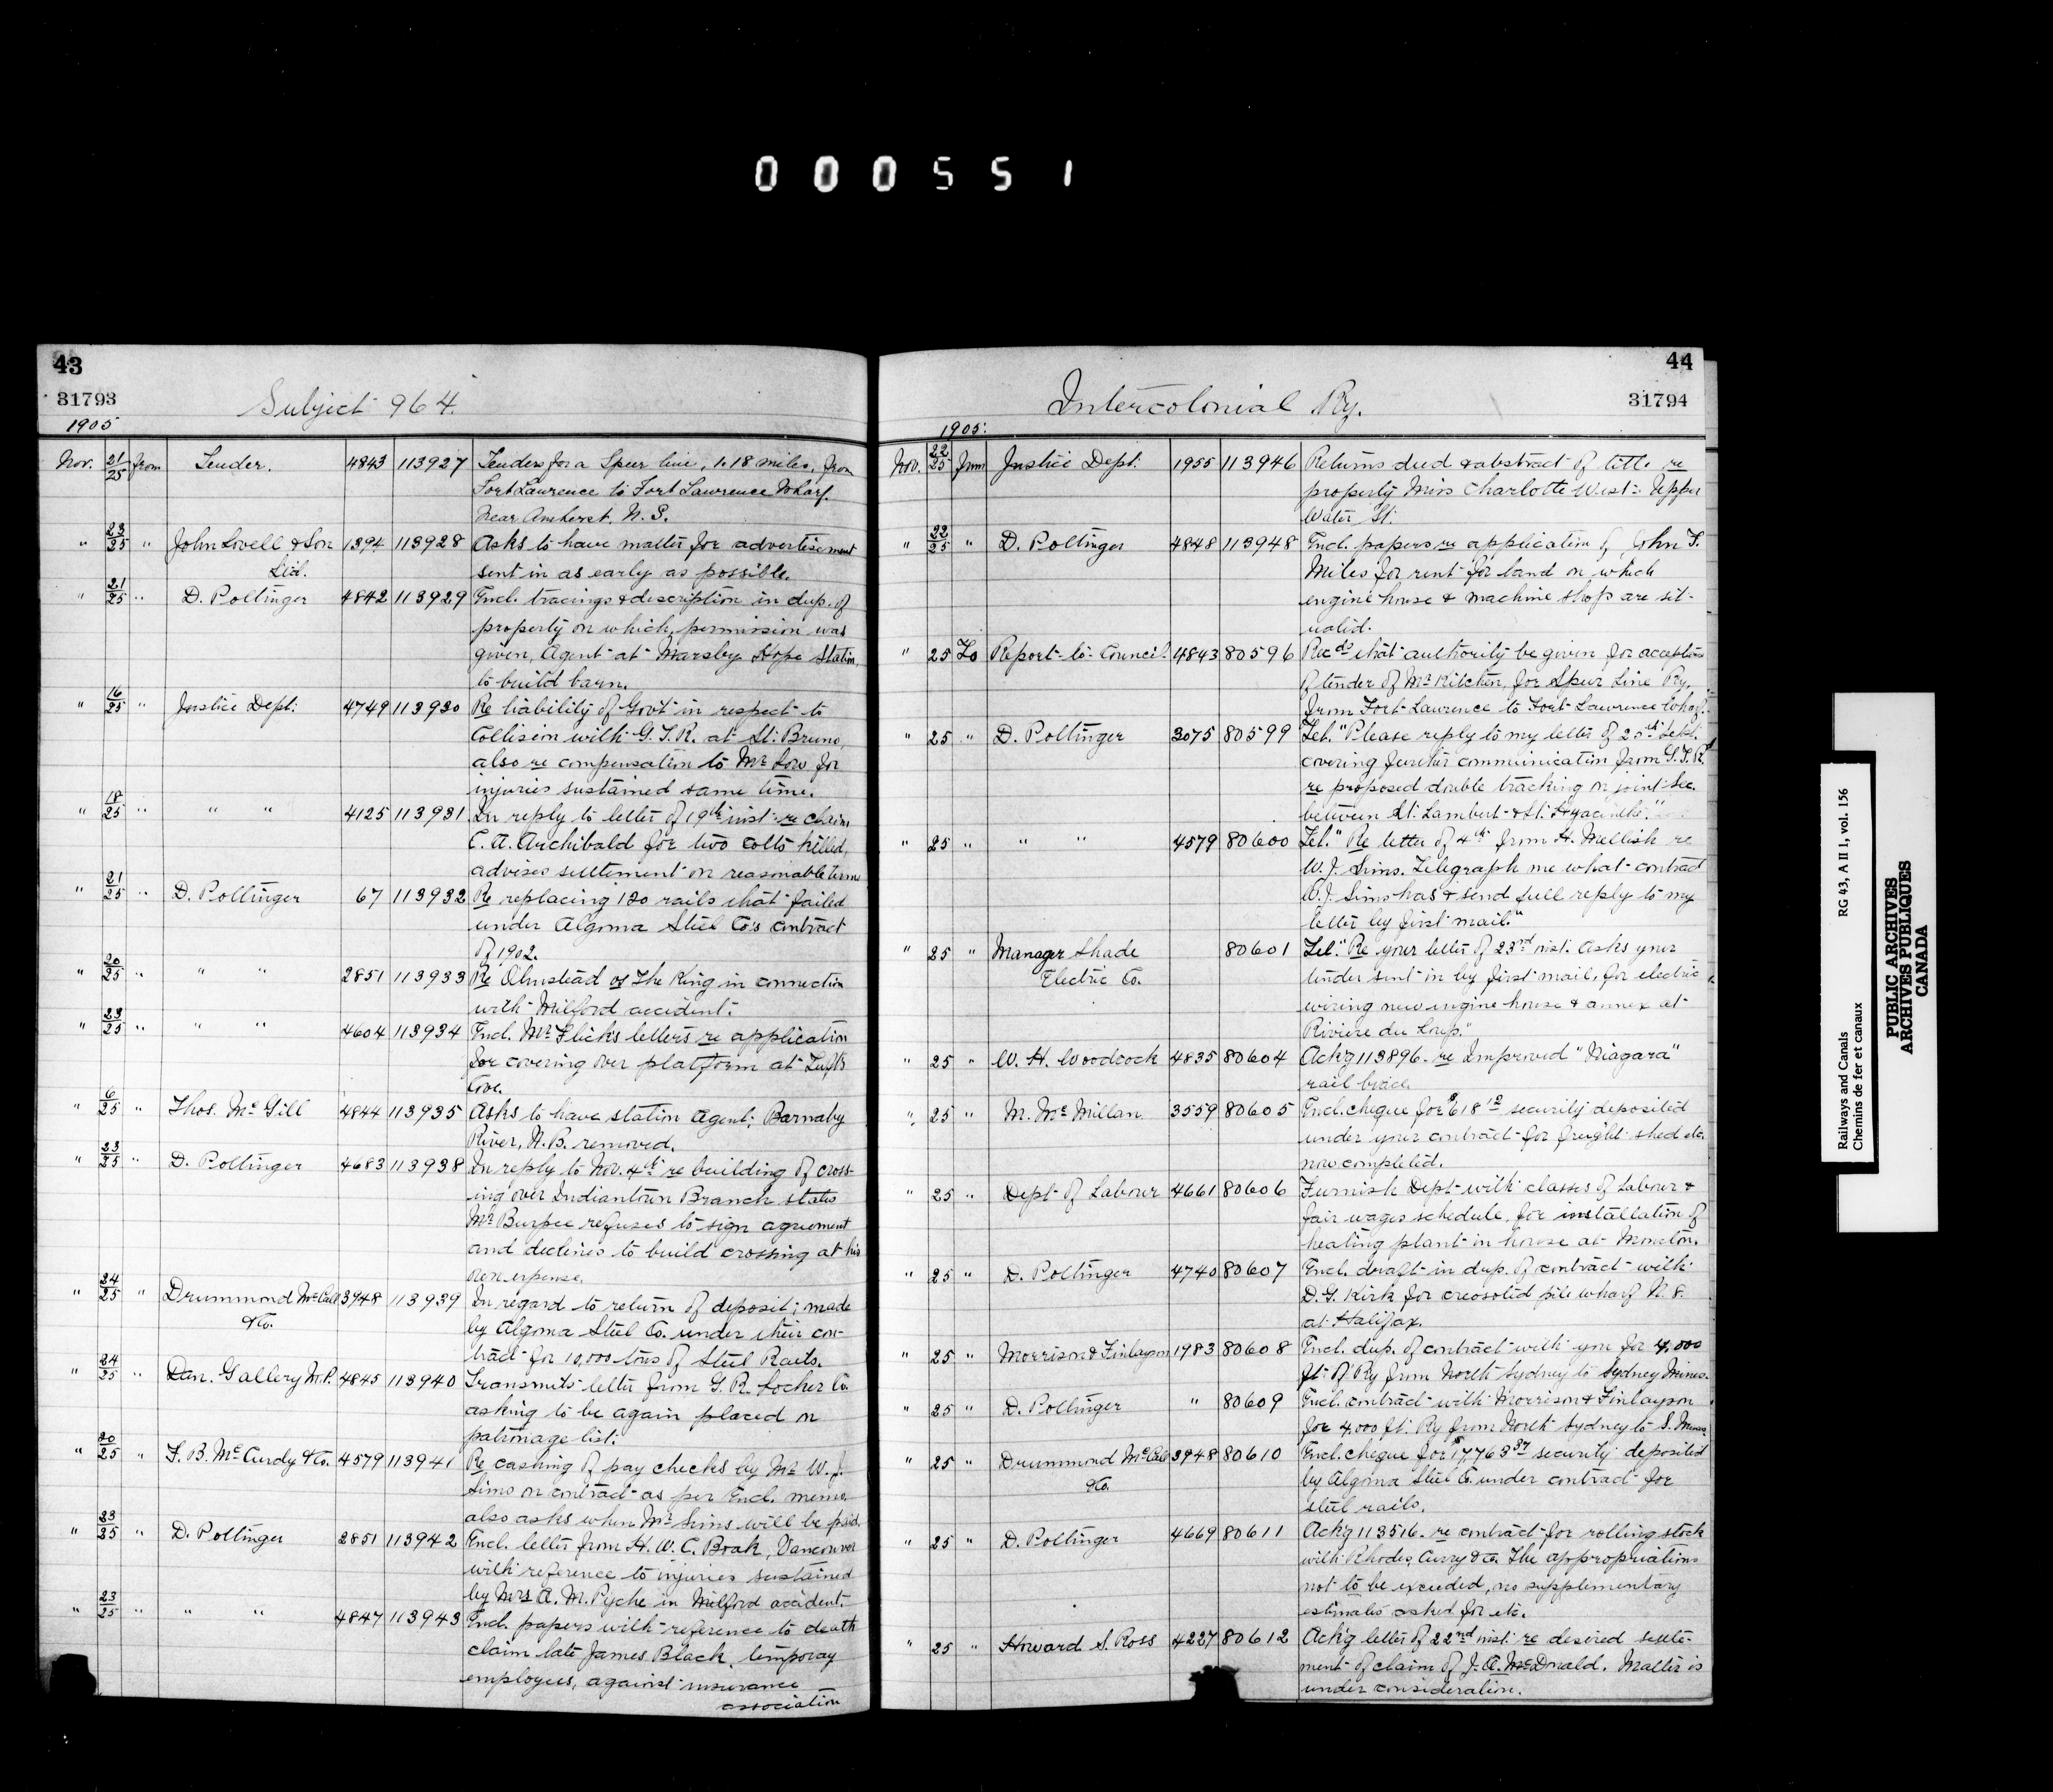 000551
43
31793
Subject 964.
1905
Nov. 21/25 from Tender. 4843 113927 Tenders for a Spur line, 1.18 miles, from
Fort Lawrence to Fort Lawrence Wharf.
Near Amherst. N. S.
" 23/25 " John Lovell & Son 1394 113928 Asks to have matter for advertisement
Ltd. sent in as early as possible.
" 21/25 " D. Pottinger 4842 113929 Encl. tracings & description in dup. of
property on which, permission was
given, Agent at Marsby Hope Station,
to build barn.
" 16/25 " Justice Dept. 4749 113930 Re liability of Govt in respect to
Collision with G. T. R. at St. Bruno,
also re compensation to Mr Low for
injuries sustained same time.
" 18/25 " " " 4125 113931 In reply to letter of 19th inst. re claim
C. A. Archibald for two colts killed,
advises settlement on reasonable terms
" 21/25 " D. Pottinger 67 113932 Re replacing 120 rails that failed
under Algoma Steel Co's contract
of 1902.
" 20/25 " " " 2851 113933 Re Olmstead vs The King in connection
with Milford accident.
" 23/25 " " " 4604 113934 Encl. Mr Flick's letters re application
for covering over platform at Tufts
Cove.
" 6/25 " Thos. McGill 4844 113935 Asks to have station Agent, Barnaby
River, N. B. removed.
" 23/25 " D. Pottinger 4683 113938 In reply to Nov. 4th re building of cross-
ing over Indiantown Branch states
Mr Burpee refuses to sign agreement
and declines to build crossing at his
own expense.
" 24/25 " Drummond McCall 3948 113939 In regard to return of deposit, made
& Co. by Algoma Steel Co. under their con-
tract for 10,000 tons of Steel Rails.
" 24/25 " Dan. Gallery M.P. 4845 113940 Transmits letter from G. R. Locker Co.
asking to be again placed on
patronage list.
" 20/25 " F. B. McCurdy & Co. 4579 113941 Re cashing of pay checks by Mr W. J.
Sims on contract as per Encl. memo.
also asks when Mr Sims will be paid.
" 23/25 " D. Pottinger 2851 113942 Encl. letter from H. W. C. Boak, Vancouver
with reference to injuries sustained
by Mrs A. M. Pyche in Milford accident.
" 23/25 " " " 4847 113943 Encl. papers with reference to death
claim late James Black, temporay
employees, against insurance
association
44
31794
Intercolonial Ry.
1905.
Nov. 22/25 from Justice Dept. 1955 113946 Returns deed & abstract of title re
property Miss Charlotte West. Upper
Water St.
" 22/25 " D. Pottinger 4848 113948 Encl. papers re application of John F.
Miles for rent for land on which
engine house & machine shops are sit-
uated.
" 25 To Report to Council 4843 80596 Recds that authority be given for acceptance
of tender of Mc Kitchen, for Spur Line Ry.
from Fort Lawrence to Fort Lawrence Wharf.
" 25 " D. Pottinger 3075 80599 Tel. "Please reply to my letter of 20th Sept.
covering further communication from G. T. R.
re proposed double tracking on joint Sec.
between St. Lambert & St. Hyacinthe."
" 25 " " " 4579 80600 Tel. "Re letter of 4th from H. Mellish re
W. J. Sims. Telegraph me what contract
W. J. Sims has & send full reply to my
letter by first mail."
" 25 " Manager Shade 80601 Tel. "Re your letter of 23rd inst. Asks your
Electric Co. tender sent in by first mail, for electric
wiring new engine house & annex at
Rivière du Loup."
" 25 " W. H. Woodcock 4835 80604 Ack'g 113896. re Improved "Niagara"
rail brace.
" 25 " M. McMillan 3559 80605 Encl. cheque for $618 12 security deposited
under your contract for freight shed etc.
now completed.
" 25 " Dept of Labour 4661 80606 Furnish Dept with classes of Labour &
fair wages schedule, for installation of
heating plant in house at Moncton.
" 25 " D. Pottinger 4740 80607 Encl. draft in dup. of contract with
D. G. Kirk for creosoted pile wharf N. S.
at Halifax.
" 25 " Morrison & Finlayson 1983 80608 Encl. dup. of contract with you for 4,000
ft. of Ry from North Sydney to Sydney Mines.
" 25 " D. Pottinger " 80609 Encl. contract with Morrison & Finlayson
for 4,000 ft. Ry from North Sydney to S. Mines
" 25 " Drummond McCall 3948 80610 Encl. cheque for $17,763 37 security deposited
& Co. by Algoma Steel Co. under contract for
steel rails.
" 25 " D. Pottinger 4669 80611 Ack'g 113516. re contract for rolling stock
with Rhodes, Curry & Co. The appropriations
not to be exceeded, no supplementary
estimates asked for etc.
" 25 " Howard S. Ross 4227 80612 Ack'g letter of 22nd inst. re desired settle-
ment of claim of J. A. McDonald. Matter is
under consideration.
Railways and Canals RG 43, A II 1, vol. 156
Chemins de fer et canaux
PUBLIC ARCHIVES
ARCHIVES PUBLIQUES
CANADA